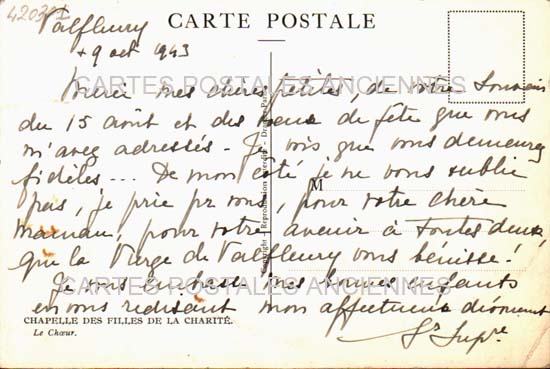 420301
CARTE POSTALE
Valfleury
+ 9 oct 1943
Merci mes chères petites, de votre Souvenir
CARTES POSTALES ANCIENNES
du 15 août et des vœux de fête que vous
m'avez adressés - Je vois que vous demeurez
fidèles ... De mon côté je ne vous oublie
M
pas, je prie pr vous, pour votre chère
maman, pour votre avenir à toutes deux,
que la Vierge de Valfleury vous bénisse !
Je vous embrasse mes bonnes enfants
CARTES POSTALES ANCIENNES
en vous redisant mon affectueux dévouement
CHAPELLE DES FILLES DE LA CHARITÉ.
Sr Supre
Le Chœur.